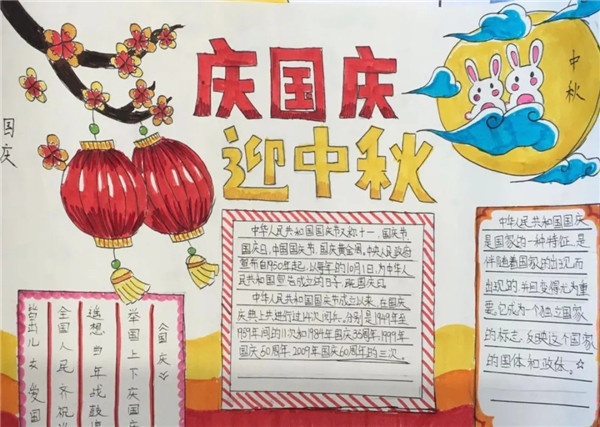 庆国庆
迎中秋
中秋
国庆
中华人民共和国国庆节又称十一、国庆节、
国庆日、中国国庆节、国庆黄金周。中央人民政府
宣布自1950年起,以每年的10月1日,为中华人
民共和国宣告成立的日子,即国庆日
中华人民共和国国庆节成立以来,在国庆
庆典上共进行过14次阅兵。分别是1949年至
1959年间的11次和1984年国庆35周年、1999年
国庆50周年、2009年国庆60周年的三次。
中华人民共和国国庆
是国家的一种特征,是
伴随着国家的出现而
出现的,并且变得尤为重
要。它成为一个独立国家
的标志,反映这个国家
的国体和政体。☆
《国庆》
举国上下庆国庆
遥想当年战鼓
全国人民齐祝
儿女爱国